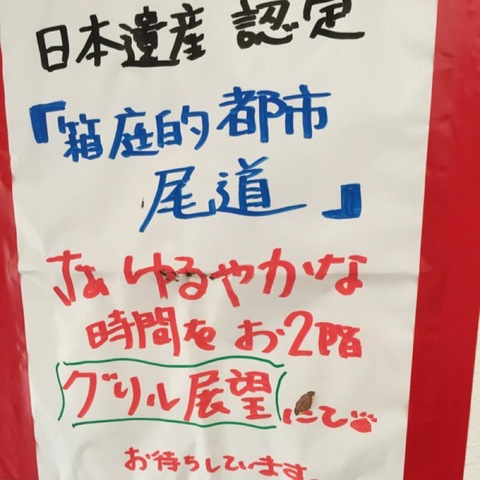 日本遺産 認定
『箱庭的都市
尾道』
さぁゆるやかな
時間をお2階
グリル展望にて
お待ちしています。